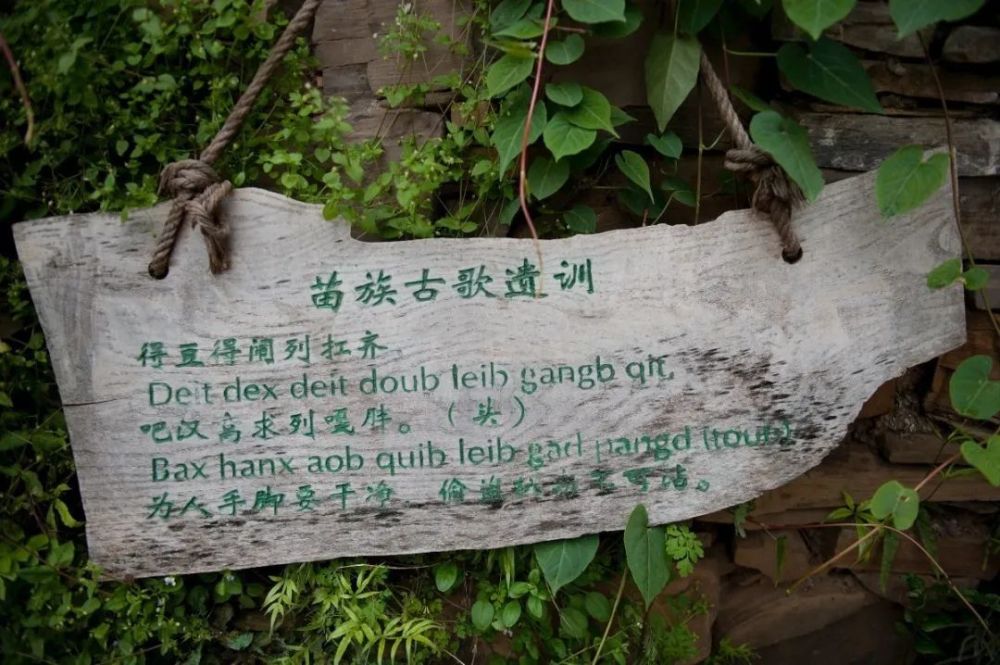 苗族古歌遗训
得豆得闹列扛齐
Deit dex deit doub leib gangb qit,
吧汉高求列嘎胖。（头）
Bax hanx aob quib leib gad pangd (toub)
为人手脚要干净 偷盗